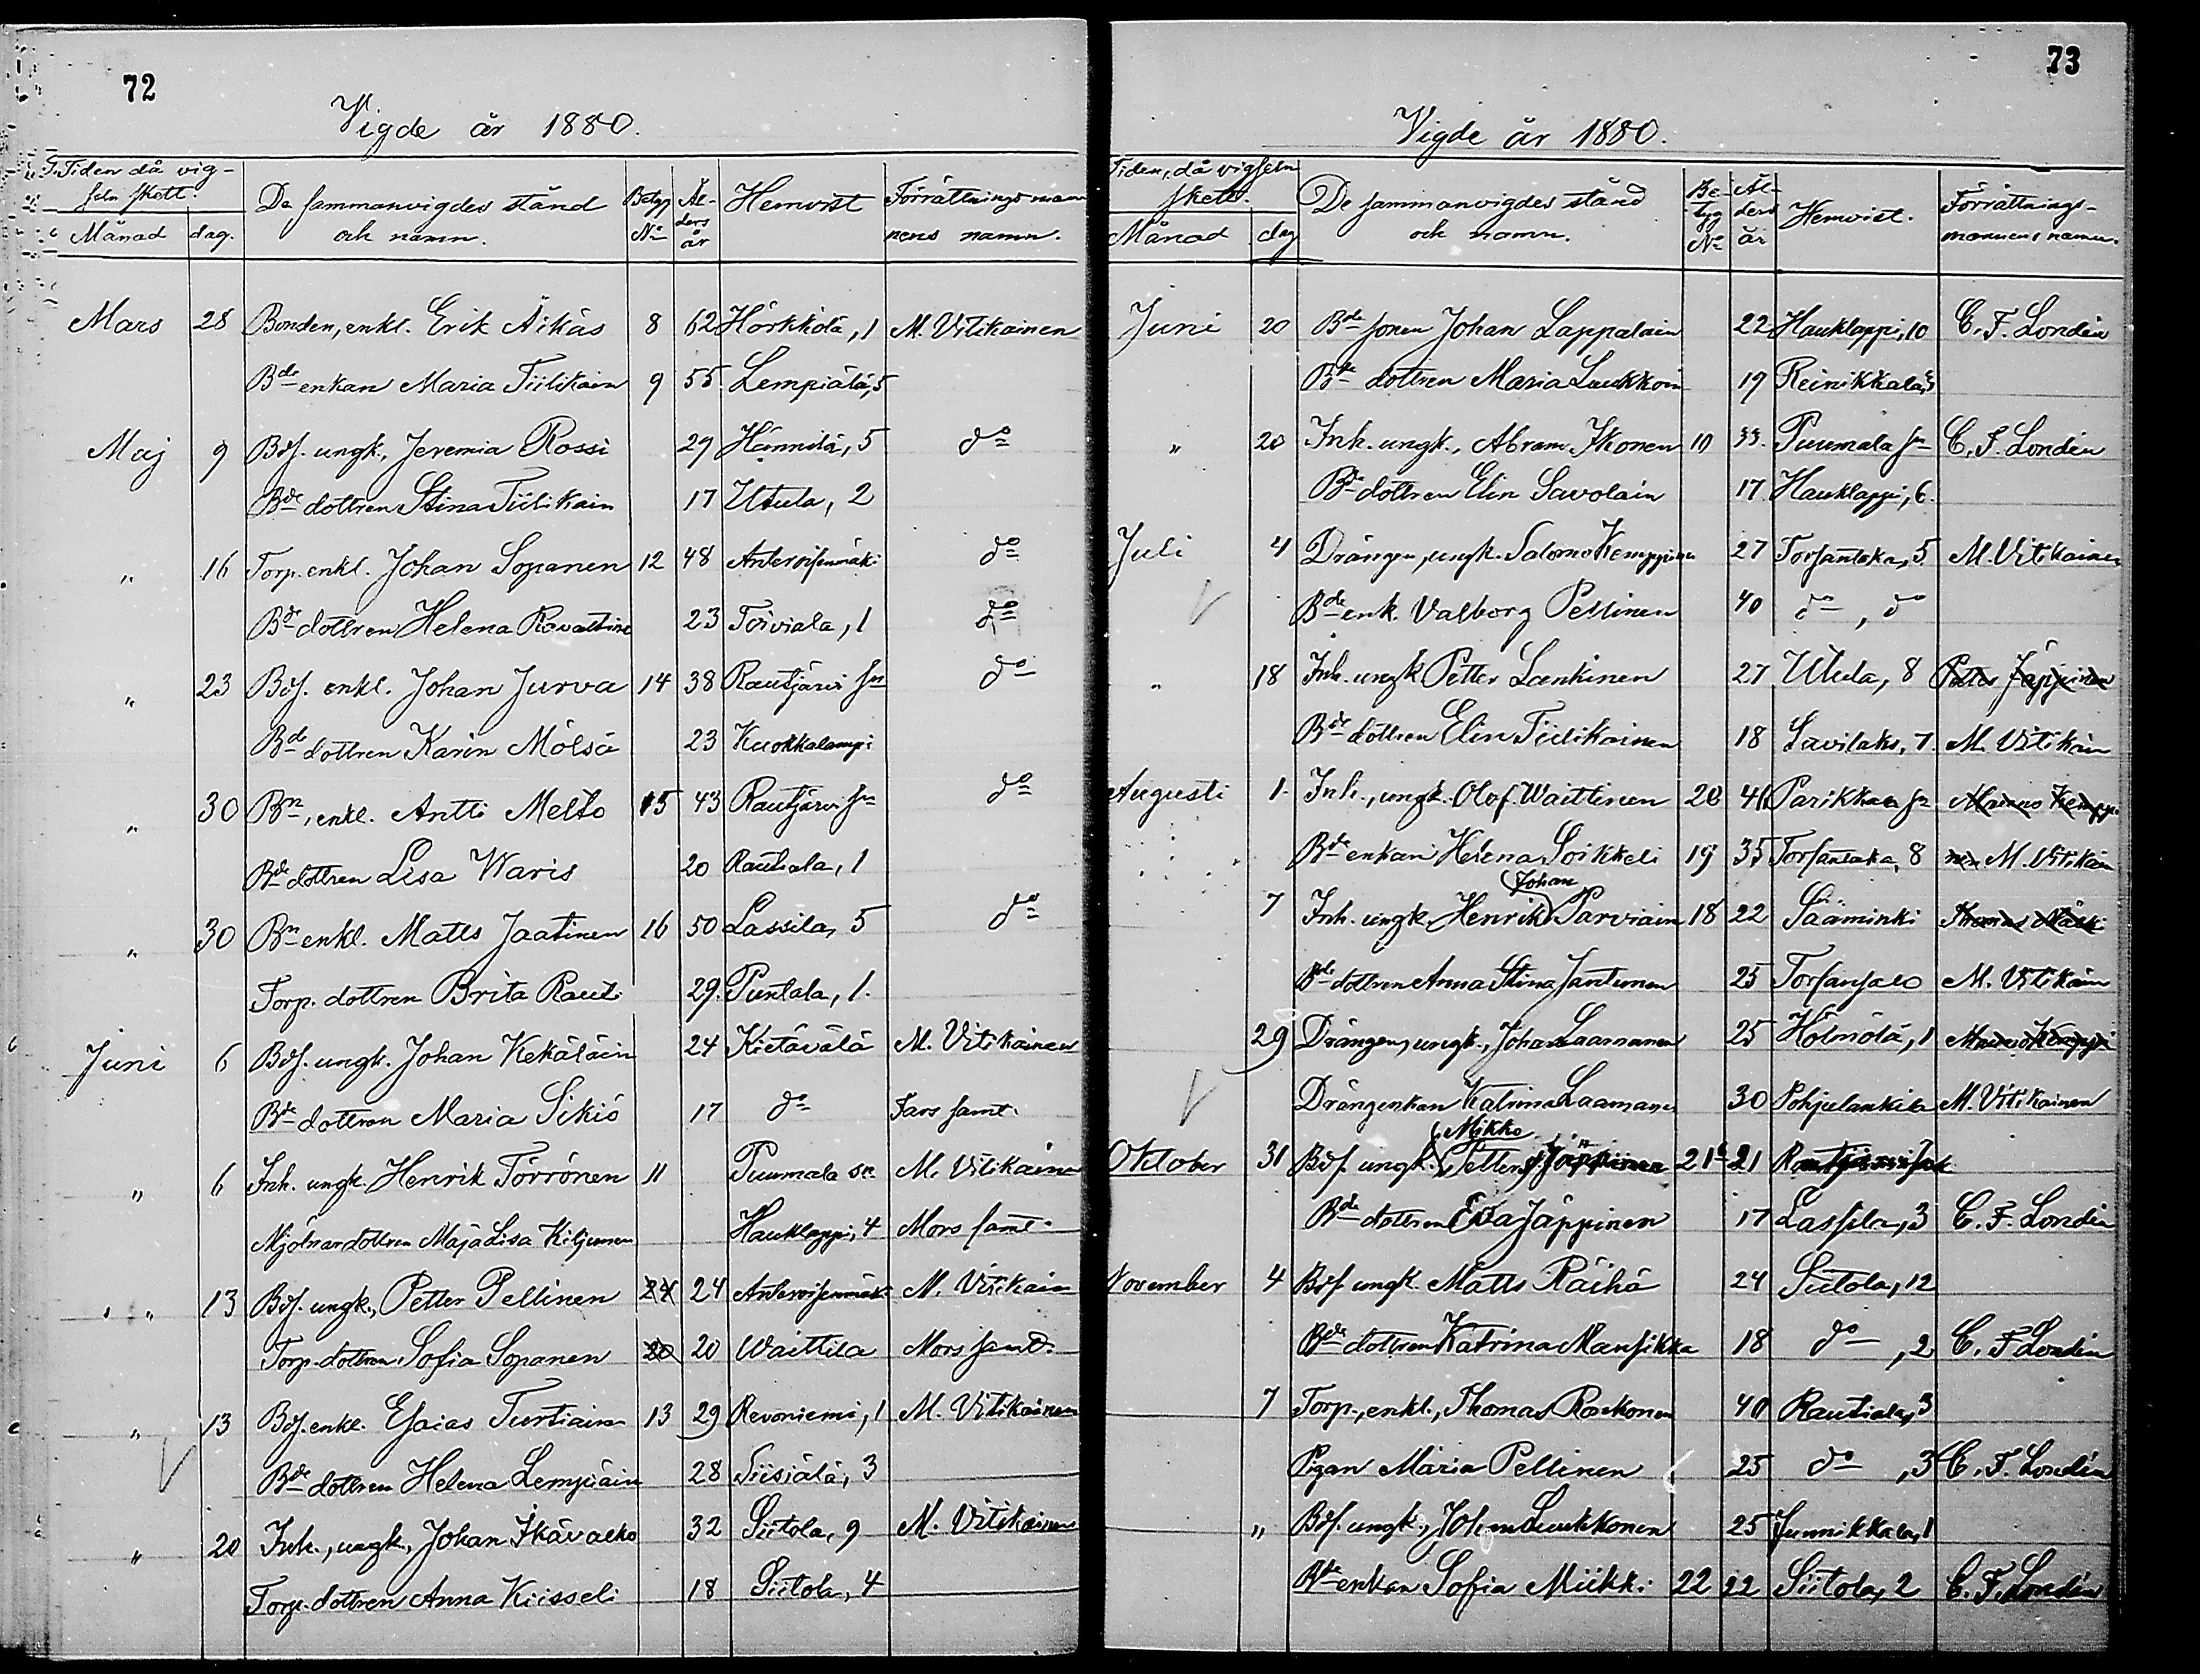 72
Vigde år 1880.
Tiden då vig-
seln skett.
Månad dag.
De sammanvigdes stånd
och namn.
Betyg
No
Ål-
ders
år
Hemvist
Förrättningsman
nens namn.
Mars 28 Bonden, enkl. Erik Äikäs 8 62 Hörkkölä, 1 M. Vitikainen
Bde enkan Maria Tiilikain 9 55. Lempiälä, 5
Maj 9 Bds. ungk., Jeremia Rossi 29 Hännilä, 5 do
Bde dottren Stina Tiilikain 17 Utula, 2
" 16 Torp. enkl. Johan Sopanen 12 48 do
Bde dottren Helena 23 Toiviala, 1 do
" 23 Bds. enkl. Johan Jurva 14 38 Rautjärvi sn do
Bde dottren Karin Mölsä 23 Kuokkalampi
" 30 Bn, enkl. Antti Melto 15 43 Rautjärvi sn do
Bde dottren Lisa Waris 20 Rautiala, 1
" 30 Bn enkl. Matts Jaatinen 16 50 Lassila, 5 do
Torp. dottren Brita Rauti 29. Puntala, 1.
Juni 6 Bds. ungk. Johan Kekäläin 24 Kietävälä M. Vitikainen
Bde dottren Maria Sikiö 17 do Fars samt.
" 6 Inh. ungk. Henrik Törrönen 11 Puumala sn. M. Vitikainen
Mjölnardottren Maja Lisa Kiljunen Hauklappi, 4 Mors samt.
" 13 Bds. ungk., Petter Pellinen 24 24 M. Vitikain
Torp. dottren Sofia Sopanen 20 20 Waittila Mors samt.
" 13 Bds. enkl. Esaias Turtiainen 13 29 Revoniemi, 1 M. Vitikainen
Bde dottren Helena Lempiäin 28 Siisiälä, 3
" 20 Inh., ungk., Johan Ikävalko 32 Siitola, 9 M. Vitikainen
Torp. dottren Anna Kiisseli 18 Siitola, 4
73
Vigde år 1880.
Tiden, då vigseln
skett.
Månad dag
De sammanvigdes stånd
och namn.
Be-
tyg
No
Ål-
ders
år
Hemvist.
Förrättnings-
mannens namn.
Juni 20 Bde sonen Johan Lappalain 22 Hauklappi, 10 C. F. Londén
Bde dottren Maria Luukkoin 19 Reinikkala,
" 20 Inh. ungk., Abram Ikonen 10 33. Puumala sn C. F. Londén
Bde dottren Elin Savolain 17 Hauklappi, 6.
Juli 4 Drängen, ungk. Salomo Kemppinen 27 Torsantaka, 5 M. Vitikainen
Bde enk. Valborg Pellinen 40 do, do
" 18 Inh. ungk Petter Lankinen 27 Utula, 8 Petter Jäppinen
Bde dottren Elin Tiilikainen 18 Savilaks, 7. M. Vitikain
Augusti 1. Inh., ungk. Olof Waittinen 20 41 Parikkala sn
Bde enkan Helena Soikkeli 19 35 Torsantaka, 8 nen M. Vitikain
Johan
7 Inh. ungk. Henrik Parviain 18 22 Sääminki
Bde dottren Anna Stina Jantunen 25 Torsansalo M. Vitikain
29 Drängen, ungk., Johan Laamanen 25 Hölmölä, 1
Drängenkan Katrina Laamanen 30 Pohjalankila M. Vitikainen
Mikko
Oktober 31 Bds. ungk. Petter Jäppinen 21 21
Bde dottren Eva Jäppinen 17 Lassila, 3 C. F. Londén
November 4 Bds. ungk. Matts Räihä 24 Siitola, 12
Bde dottren Katrina Mansikka 18 do, 2 C. F. Londén
7 Torp., enkl., Thomas Roukonen 40 Rautiala, 3
Pigan Maria Pellinen 25 do, 3 C. F. Londén
" Bds. ungk., Johan Luukkonen 25 Junnikkala, 1
Bde enkan Sofia Miikki 22 22 Siitola, 2 C. F. Londén